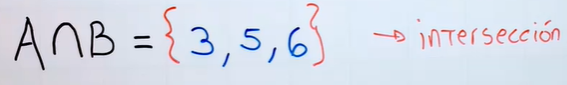 A∩B = {3, 5, 6} → intersección